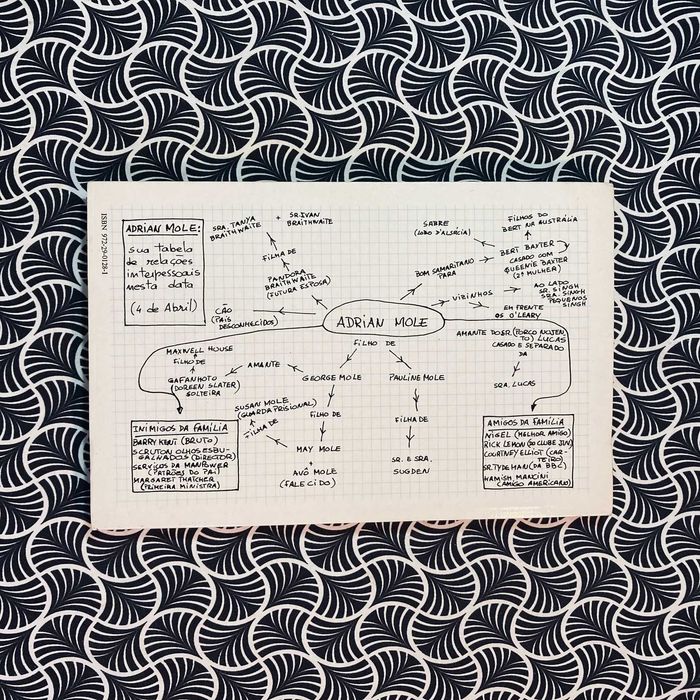 ISBN 972-29-0128-1
ADRIAN MOLE:
sua tabela
de relações
interpessoais
nesta data
(4 de Abril)
SRA. TANYA
BRAITHWAITE
+ SR. IVAN
BRAITHWAITE
FILHA DE
PANDORA
BRAITHWAITE
(FUTURA ESPOSA)
CÃO
(PAIS
DESCONHECIDOS)
SABRE
(LOBO D'ALSÁCIA)
FILHOS DO
BERT NA AUSTRÁLIA
BOM SAMARITANO
PARA
BERT BAXTER
CASADO COM
QUEENIE BAXTER
(2ª MULHER)
VIZINHOS
AO LADO
SR. SINGH
SRA. SINGH
PEQUENOS
SINGH
EM FRENTE
OS O'LEARY
ADRIAN MOLE
FILHO DE
MAXWELL HOUSE
FILHO DE
GAFANHOTO
(DOREEN SLATER)
SOLTEIRA
AMANTE
GEORGE MOLE
PAULINE MOLE
AMANTE DO SR. (PORCO NOJEN-
TO) LUCAS
CASADO E SEPARADO
DA
SRA. LUCAS
SUSAN MOLE
(GUARDA PRISIONAL)
FILHA DE
FILHO DE
MAY MOLE
+
AVÔ MOLE
(FALECIDO)
FILHA DE
SR. E SRA.
SUGDEN
INIMIGOS DA FAMÍLIA
BARRY KENT (BRUTO)
SCRUTON OLHOS ESBU-
GALHADOS (DIRECTOR)
SERVIÇOS DA MANPOWER
(PATRÕES DO PAI)
MARGARET THATCHER
(PRIMEIRA MINISTRA)
AMIGOS DA FAMÍLIA
NIGEL (MELHOR AMIGO)
RICK LEMON (DO CLUBE JUV.)
COURTNEY ELLIOT (CAR-
TEIRO)
SR. TYDEMAN (DA BBC)
HAMISH MANCINI
(AMIGO AMERICANO)